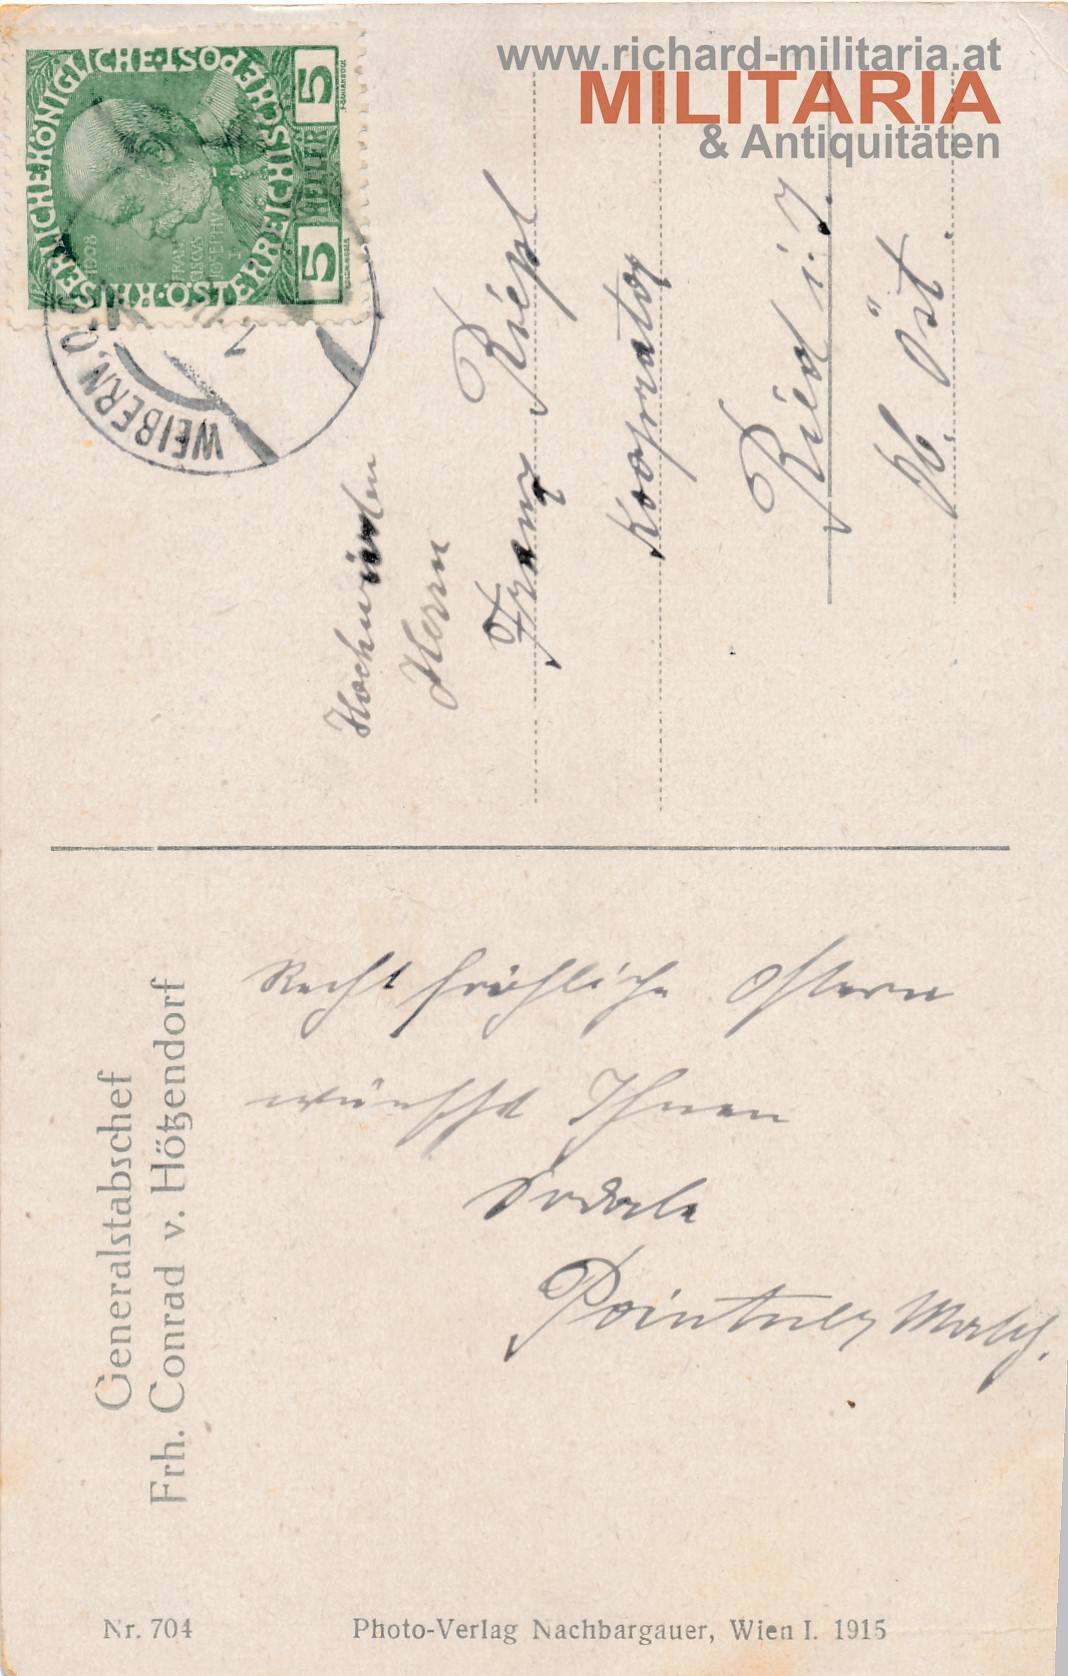 www.richard-militaria.at
MILITARIA
& Antiquitäten
KAISERLICHEKÖNIGLICHE·POST
KK·ÖSTERREICHISCHE
5 HELLER 5
1908
FRAN
CISCVS
IOSEPHVS I
WEIBERN, O.
Hochwürden
Herrn
Franz Riepl
Kooprator
Ried i. I.
Ob. Öst.
Generalstabschef
Frh. Conrad v. Hötzendorf
Recht fröhliche Ostern
wünscht Ihnen
Sodale
Pointner
Nr. 704
Photo-Verlag Nachbargauer, Wien I. 1915